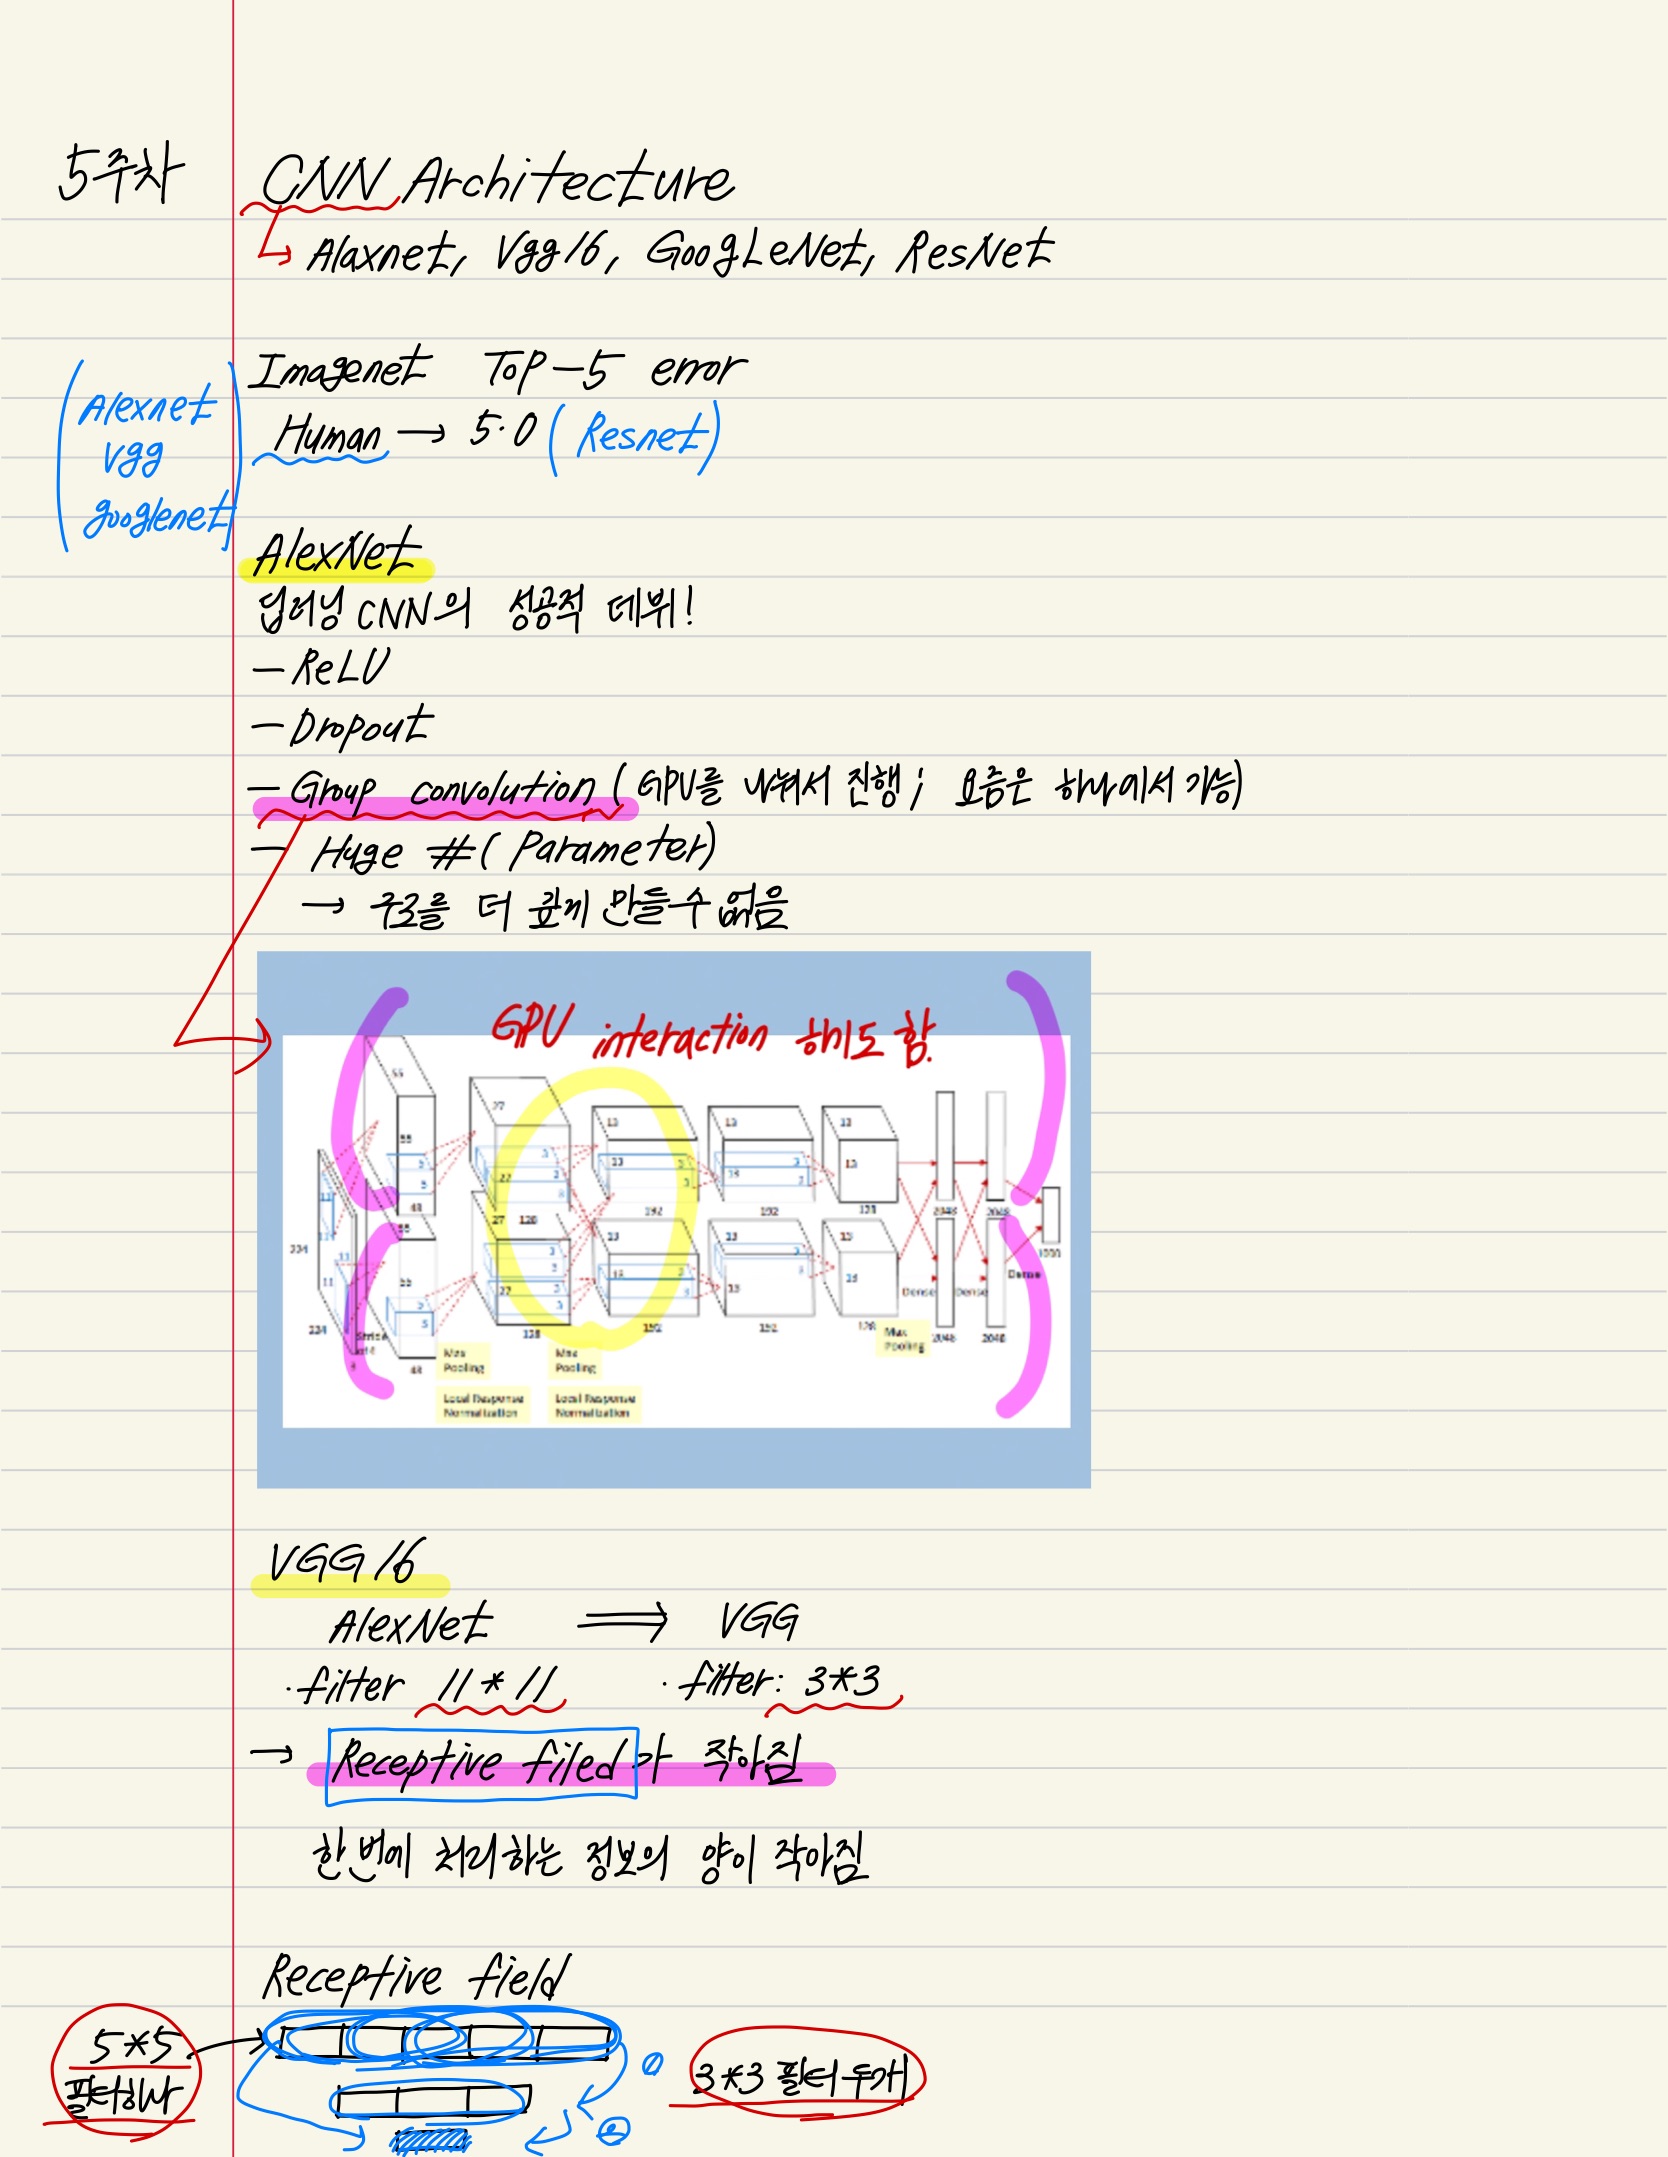 5주차
CNN Architecture
Alaxnet, Vgg16, GoogLeNet, ResNet
Imagenet Top-5 error
Human → 5.0 (Resnet)
(Alexnet
Vgg
googlenet)
AlexNet
딥러닝 CNN의 성공적 데뷔!
- ReLU
- Dropout
- Group convolution (GPU를 나눠서 진행; 요즘은 하나에서 가능)
- Huge #(Parameter)
→ 구조를 더 깊게 만들 수 없음
GPU interaction 하기도 함.
55
27
13 13 13
55
5
5
48
27
3
3
128
13
3
3
192
13
3
3
192
13
128
2048 2048
11
11
224
224
3
Stride of 4
55
55
5
5
48
27
27
3
3
128
13
13
3
3
192
13
13
3
3
192
13
13
128
2048 2048
1000
Dense Dense Dense
Max Pooling
Max Pooling
Max Pooling
Local Response Normalization
Local Response Normalization
VGG16
AlexNet ⇒ VGG
·filter 11*11 ·filter: 3*3
→ Receptive filed가 작아짐
한번에 처리하는 정보의 양이 작아짐
Receptive field
5*5
필터하나
①
②
3*3 필터 두개